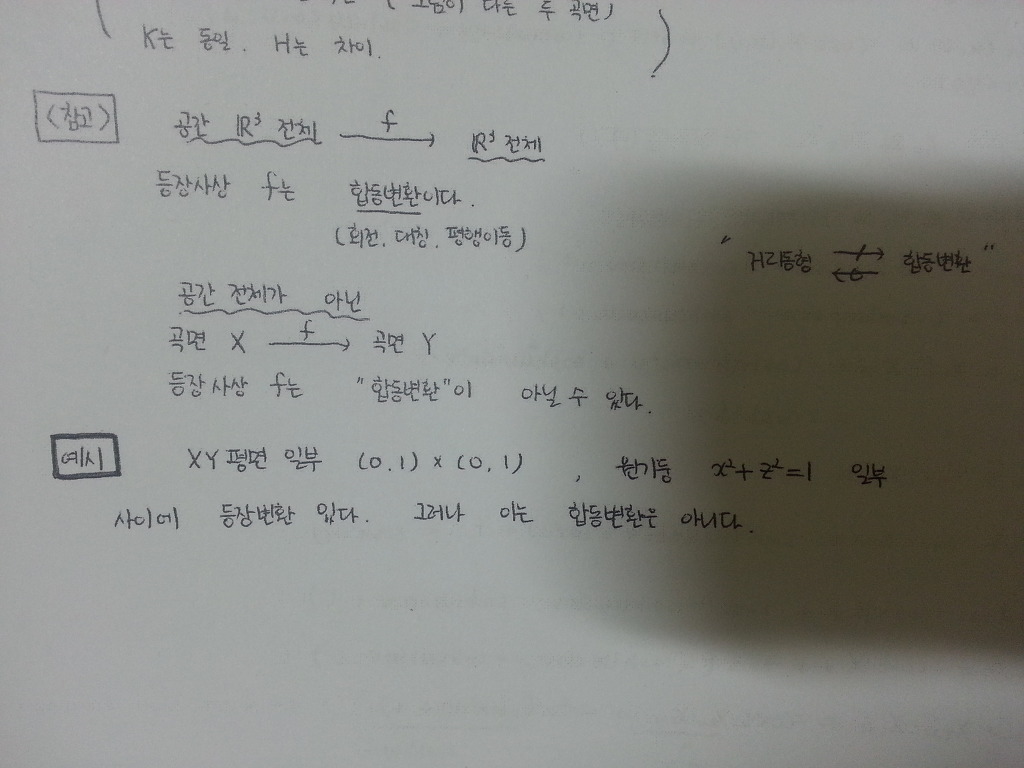 ( 그림이 다른 두 곡면)
K는 동일. H는 차이.
<참고> 공간 ℝ³ 전체 f→ ℝ³ 전체
등장사상 f는 합동변환이다.
(회전, 대칭, 평행이동)
" 거리동형 ↛ ← 합동변환 "
공간 전체가 아닌
곡면 X f→ 곡면 Y
등장사상 f는 "합동변환"이 아닐 수 있다.
예시 XY평면 일부 (0,1)×(0,1) , 원기둥 x²+z²=1 일부
사이에 등장변환 있다. 그러나 이는 합동변환은 아니다.